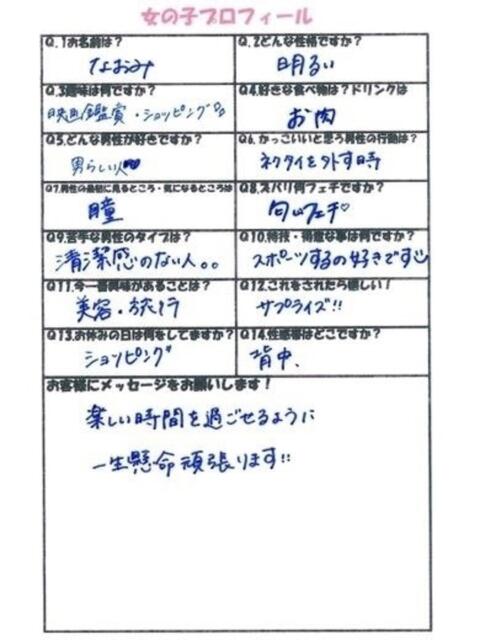 女の子プロフィール
Q.1お名前は？
Q.2どんな性格ですか？
なおみ
明るい
Q.3趣味は何ですか？
Q.4.好きな食べ物は？ドリンクは
映画鑑賞・ショッピング
お肉
Q5.どんな男性が好きですか？
Q6.かっこいいと思う男性の行動は？
男らしい人♥
ネクタイを外す時
Q7.男性の最初に見るところ・気になるところは
Q8.ズバリ何フェチですか？
瞳
匂いフェチ♡
Q9.苦手な男性のタイプは？
Q10.特技・得意な事は何ですか？
清潔感のない人。。
スポーツするの好きです
Q.11.今一番興味があることは？
Q12.これをされたら嬉しい！
美容・旅行
サプライズ!!
Q.13.お休みの日は何をしてますか？
Q.14.性感帯はどこですか？
ショッピング
背中、
お客様にメッセージをお願いします！
楽しい時間を過ごせるように
一生懸命頑張ります!!